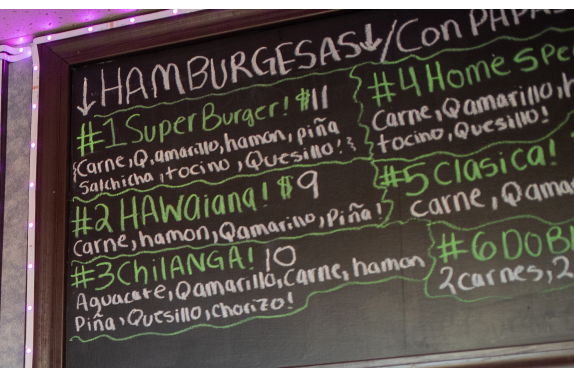 ↓HAMBURGESAS↓/Con PAPAS
#1 Super Burger! $11
Carne, Q.amarillo, hamon, piña
Salchicha, tocino, Quesillo!
#2 HAWaiana! $9
Carne, hamon, Qamarillo, Piña!
#3 ChilANGA! 10
Aguacate, Qamarillo, Carne, hamon
Piña, Quesillo, Chorizo!
#4 Home Spe
Carne, Qamarillo, h
tocino, Quesillo!
#5 Clasica!
Carne, Qamar
#6 DOB
2carnes, 2